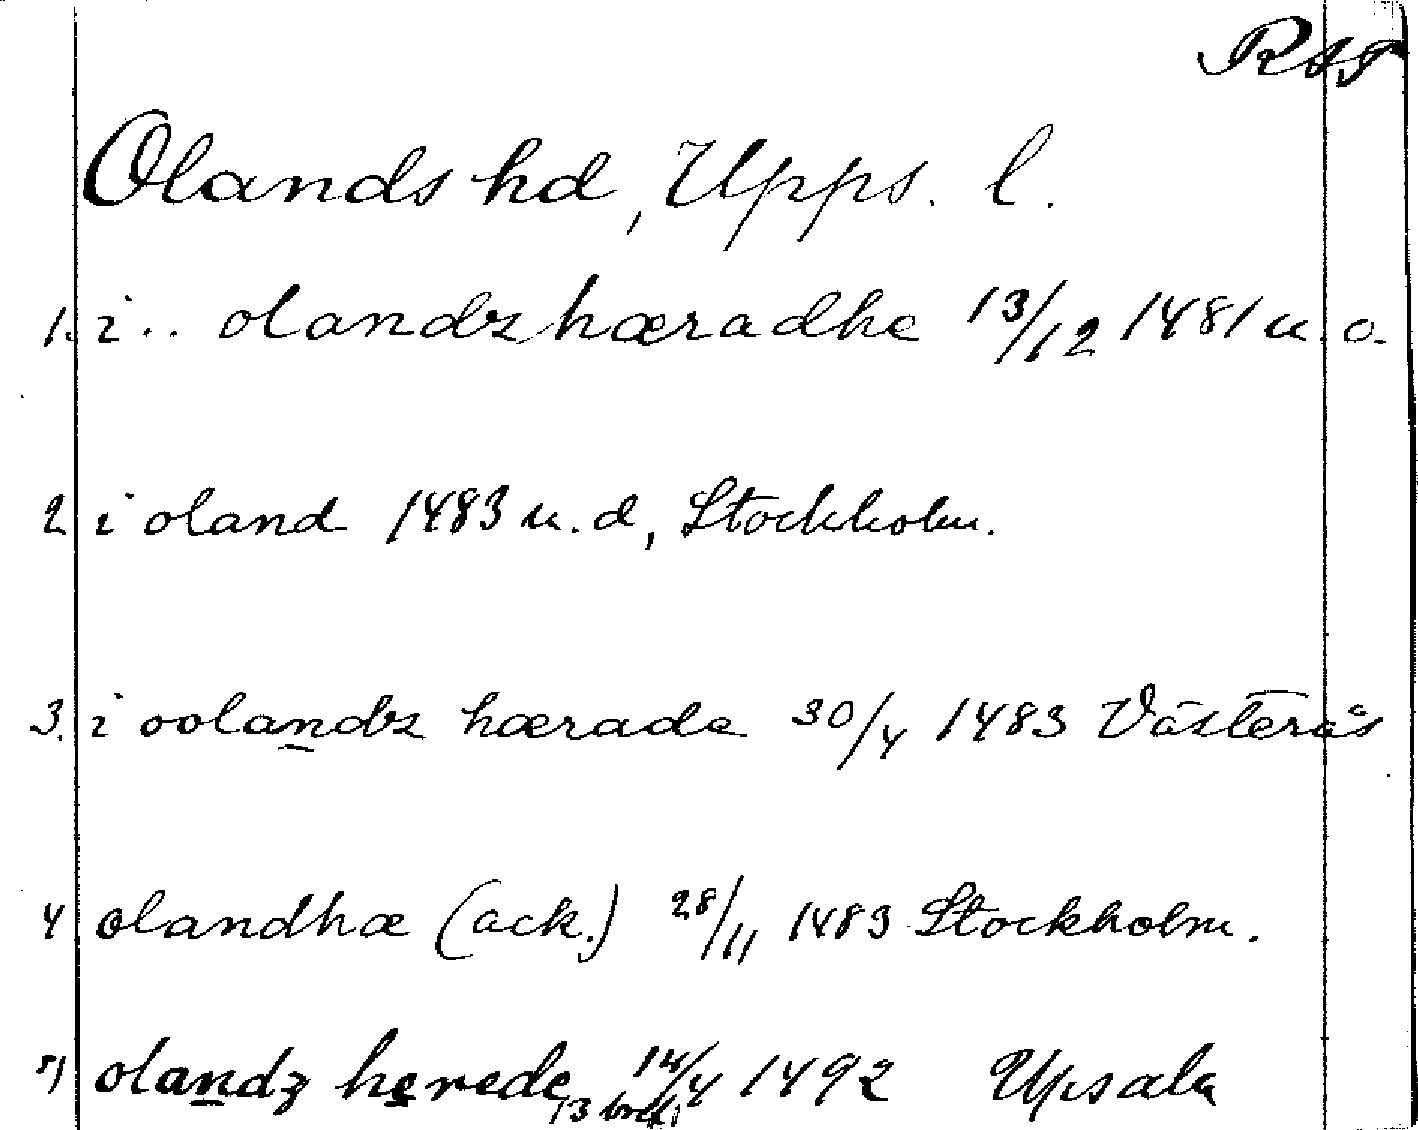 RAP
Olands hd, Upps. l.
1. i .. olandzhæradhe 13/12 1481 u. o.
2 i oland 1483 u. d, Stockholm.
3. i oolandz hærade 30/4 1483 Västerås
4 olandhæ (ack.) 28/11 1483 Stockholm.
5) olandz herede 14/4 1492 Upsala